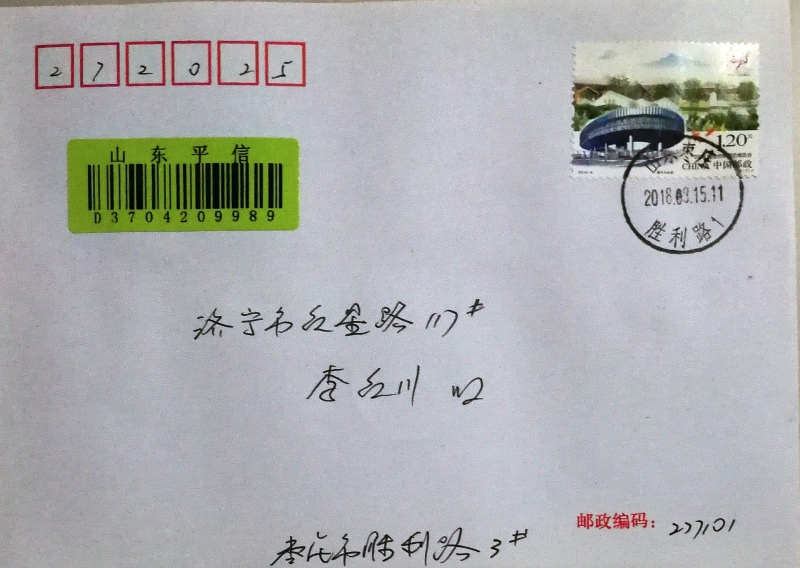 272025
山东平信
D3704209989
1.20元
CHINA 中国邮政
山东枣庄
2018.03.15.11
胜利路1
济宁市红星路117#
李红川 收
邮政编码: 277101
枣庄市胜利路3#